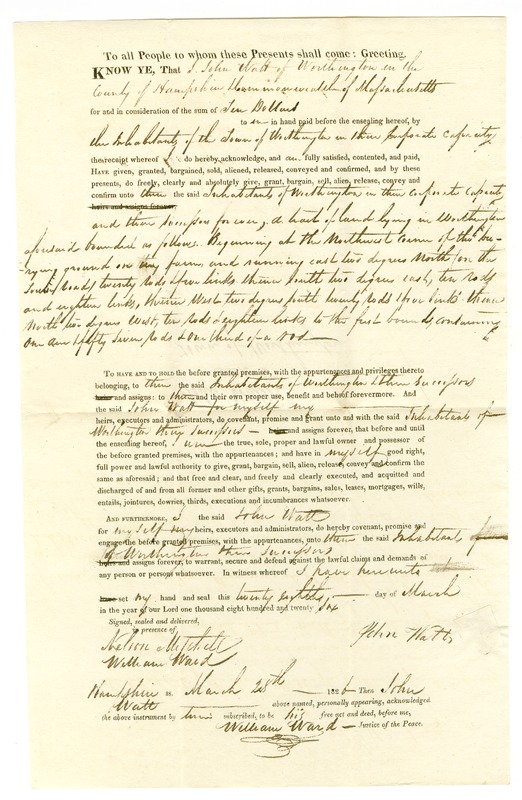 To all People to whom these Presents shall come: Greeting.
KNOW YE, That I John Watt of Worthington in the
County of Hampshire & Commonwealth of Massachusetts
for and in consideration of the sum of Ten Dollars
to me in hand paid before the ensealing hereof, by
the Inhabitants of the Town of Worthington in their corporate capacity
the receipt whereof I do hereby acknowledge, and am fully satisfied, contented, and paid,
HAVE given, granted, bargained, sold, aliened, released, conveyed and confirmed, and by these
presents, do freely, clearly and absolutely give, grant, bargain, sell, alien, release, convey and
confirm unto them the said Inhabitants of Worthington in their corporate capacity
heirs and assigns forever,
and their successors forever, a tract of land lying in Worthington
aforesaid bounded as follows. Beginning at the Northwest corner of the bu-
rying ground on my farm, and running east two degrees North on the
road twenty rods & four links thence south two degrees east, ten rods
and eighteen links, thence West two degrees south twenty rods & four links thence
North two degrees West, ten rods & eighteen links to the first bounds, containing
one acre & fifty seven rods & one third of a rod
TO HAVE AND TO HOLD the before granted premises, with the appurtenances and privileges thereto
belonging, to them the said Inhabitants of Worthington & their successors
heirs and assigns: to them and their own proper use, benefit and behoof forevermore. And
the said John Watt for myself my
heirs, executors and administrators, do covenant, promise and grant unto and with the said Inhabitants of
Worthington their successors heirs and assigns forever, that before and until
the ensealing hereof, I am the true, sole, proper and lawful owner and possessor of
the before granted premises, with the appurtenances; and have in myself good right,
full power and lawful authority to give, grant, bargain, sell, alien, release, convey and confirm the
same as aforesaid; and that free and clear, and freely and clearly executed, and acquitted and
discharged of and from all former and other gifts, grants, bargains, sales, leases, mortgages, wills,
entails, jointures, dowries, thirds, executions and incumbrances whatsoever.
AND FURTHERMORE, I the said John Watt
for myself my heirs, executors and administrators, do hereby covenant, promise and
engage the before granted premises, with the appurtenances, unto them the said Inhabitants
of Worthington their successors
heirs and assigns forever, to warrant, secure and defend against the lawful claims and demands of
any person or persons whatsoever. In witness whereof I have hereunto
set my hand and seal this twenty eighth day of March
in the year of our Lord one thousand eight hundred and twenty six
Signed, sealed and delivered,
in presence of
John Watt
Nelson Mitchell
William Ward
Hampshire ss. March 28th 1826 Then John
Watt above named, personally appearing, acknowledged
the above instrument by him subscribed, to be his free act and deed, before me,
William Ward Justice of the Peace.